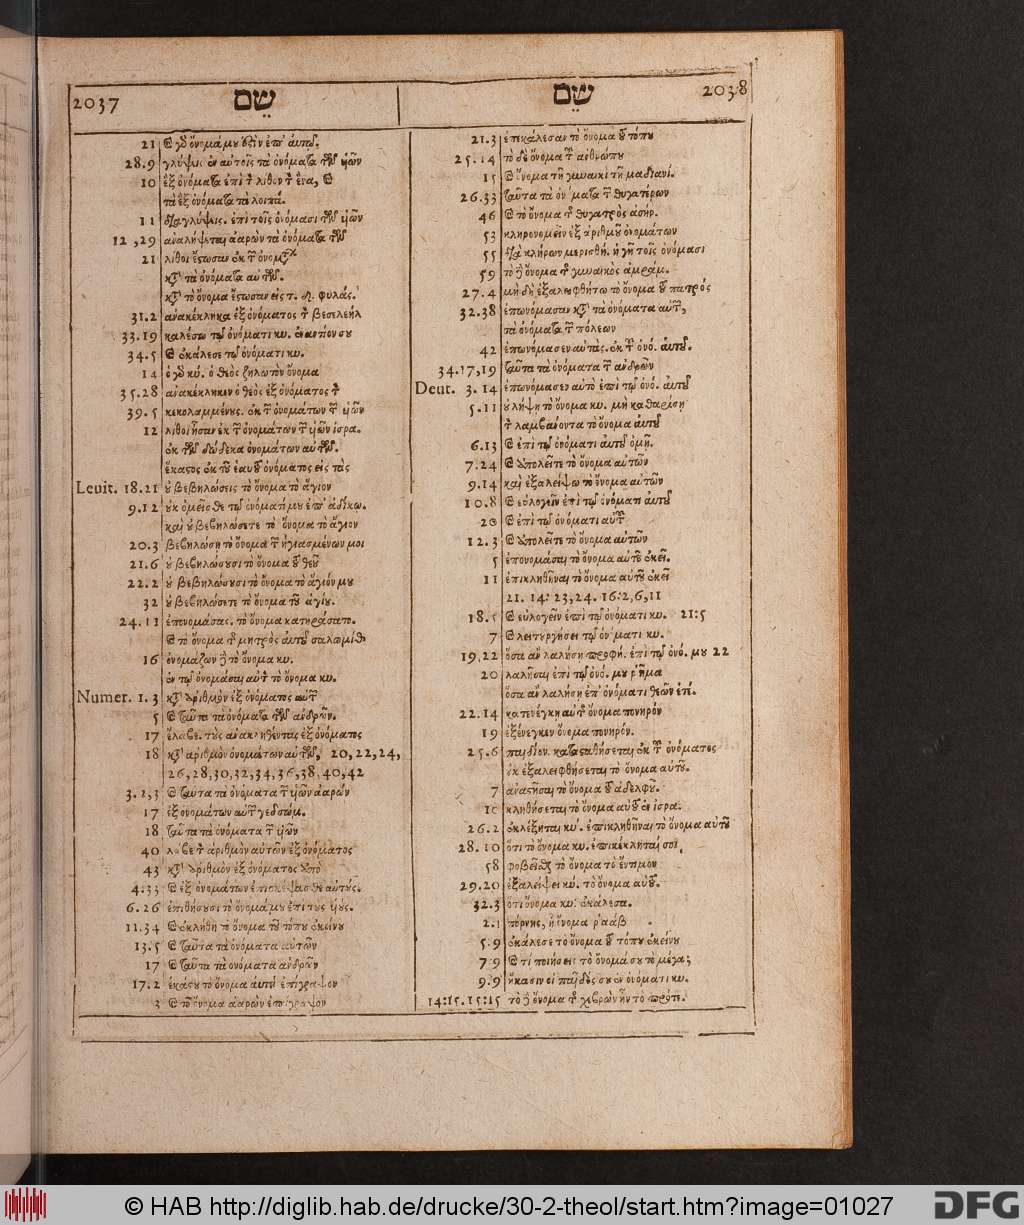 2037
שֵׁם
שֵׁם
2038
21 ὄνομά μου
28.9 γλύψεις ἐν αὐτοῖς τὰ ὀνόματα τῶν υἱῶν
10 ἓξ ὀνόματα ἐπὶ τ λίθον τ ἕνα, καὶ
τὰ ἓξ ὀνόματα τὰ λοιπά.
11 διαγλύψεις. ἐπὶ τοῖς ὀνόμασι τῶν υἱῶν
12,29 ἀναλήψεται ἀαρὼν τὰ ὀνόματα τῶν
21 λίθοι ἔστωσαν ἐκ τ
κτ τὰ ὀνόματα αὐτῶν.
κτ τὸ ὄνομα ἔστωσαν εἰς φυλάς.
31.2 ἀνακέκληκα ἐξ ὀνόματος τ βεσελεήλ
33.19 καλέσω τῷ ὀνόματι κυ. ἐναντίον σου
34.5 καὶ ἐκάλεσε τῷ ὀνόματι κυ.
14 ὁ κύ. ὁ θεὸς ζηλωτὸν ὄνομα
35.28 ἀνακέκληκεν ὁ θεὸς ἐξ ὀνόματος τ
39.5 ἐκ τ ὀνομάτων τ υἱῶν
12 λίθοι ἦσαν ἐκ τ ὀνομάτων τ υἱῶν ἰσρα.
ἐκ τῶν δώδεκα ὀνομάτων αὐτῶν.
ἕκαστος ἐκ τοῦ ἑαυτοῦ ὀνόματος εἰς τὰς
Leuit. 18.21 οὐ βεβηλώσεις τὸ ὄνομα τὸ ἅγιον
9.12 οὐκ ὀμεῖσθε τῷ ὀνόματί μου ἐπ' ἀδίκω.
καὶ οὐ βεβηλώσετε τὸ ὄνομα τὸ ἅγιον
20.3 βεβηλώσῃ τὸ ὄνομα τ ἡγιασμένων μοι
21.6 οὐ βεβηλώσουσι τὸ ὄνομα τοῦ θεοῦ
22.2 οὐ βεβηλώσουσι τὸ ὄνομα τὸ ἅγιόν μου
32 οὐ βεβηλώσετε τὸ ὄνομα τοῦ ἁγίου.
24.11 ἐπονομάσας. τὸ ὄνομα κατηράσατο.
καὶ τὸ ὄνομα τ μητρὸς αὐτοῦ σαλωμὶθ
16 ὀνομάζων τὸ ὄνομα κυ.
ἐν τῷ ὀνομάσαι αὐτ τὸ ὄνομα κυ.
Numer. 1.3 κτ ἀριθμὸν ἐξ ὀνόματος αὐτ
5 καὶ ταῦτα τὰ ὀνόματα τῶν ἀνδρῶν.
17 ἔλαβε. τοὺς ἀνακληθέντας ἐξ ὀνόματος
18 κτ ἀριθμὸν ὀνομάτων αὐτῶν, 20,22,24,
26,28,30,32,34,36,38,40,42
3.2,3 καὶ ταῦτα τὰ ὀνόματα τ υἱῶν ἀαρών
17 ἐξ ὀνομάτων αὐτ γεδσώμ.
18 ταῦτα τὰ ὀνόματα τ υἱῶν
40 λάβε τ ἀριθμὸν αὐτῶν ἐξ ὀνόματος
43 κτ ἀριθμὸν ἐξ ὀνόματος ἀπὸ
4.33 καὶ ἐξ ὀνομάτων ἐπισκέψασθε αὐτούς.
6.26 ἐπιθήσουσι τὸ ὄνομά μου ἐπὶ τοὺς υἱούς.
11.34 καὶ ἐκλήθη τὸ ὄνομα τοῦ τόπου ἐκείνου
13.5 καὶ ταῦτα τὰ ὀνόματα αὐτῶν
17 καὶ ταῦτα τὰ ὀνόματα ἀνδρῶν
17.2 ἑκάστου τὸ ὄνομα αὐτοῦ ἐπίγραψον
3 καὶ τὸ ὄνομα ἀαρὼν ἐπίγραψον
21.3 ἐπεκάλεσαν τὸ ὄνομα τοῦ τόπου
25.14 τὸ δὲ ὄνομα τ ἀνθρώπου
15 καὶ ὄνομα τῇ γυναικὶ τῇ μαδιανί.
26.33 ταῦτα τὰ ὀνόματα τ θυγατέρων
46 καὶ τὸ ὄνομα τ θυγατρὸς ἀσήρ.
53 κληρονομεῖν ἐξ ἀριθμοῦ ὀνομάτων
55 διὰ κλήρων μερισθή. ἡ γῆ τοῖς ὀνόμασι
59 τὸ ὄνομα τ γυναικὸς ἀμράμ.
27.4 μὴ δὴ ἐξαλειφθήτω τὸ ὄνομα τοῦ πατρός
32.38 ἐπωνόμασαν κτ τὰ ὀνόματα αὐτ,
τὰ ὀνόματα τ πόλεων
42 ἐπωνόμασεν αὐτὰς. ἐκ τ ὀνό. αὐτοῦ.
34.17,19 ταῦτα τὰ ὀνόματα τ ἀνδρῶν
Deut. 3.14 ἐπωνόμασεν αὐτὸ ἐπὶ τῷ ὀνό. αὐτοῦ
5.11 οὐ λήψῃ τὸ ὄνομα κυ. μὴ καθαρίσῃ
τ λαμβάνοντα τὸ ὄνομα αὐτοῦ
6.13 καὶ ἐπὶ τῷ ὀνόματι αὐτοῦ ὀμῇ.
7.24 καὶ ἀπολεῖτε τὸ ὄνομα αὐτῶν
9.14 καὶ ἐξαλείψω τὸ ὄνομα αὐτῶν
10.8 καὶ εὐλογεῖν ἐπὶ τῷ ὀνόματι αὐτοῦ
20 καὶ ἐπὶ τῷ ὀνόματι αὐτ
12.3 καὶ ἀπολεῖτε τὸ ὄνομα αὐτῶν
5 ἐπονομάσαι τὸ ὄνομα αὐτοῦ ἐκεῖ.
11 ἐπικληθῆναι τὸ ὄνομα αὐτοῦ ἐκεῖ
21. 14: 23,24. 16:2,6,11
18.5 καὶ εὐλογεῖν ἐπὶ τῷ ὀνόματι κυ. 21:5
7 καὶ λειτουργήσει τῷ ὀνόματι κυ.
19,22 ὅσα ἂν λαλήσῃ προφή. ἐπὶ τῷ ὀνό. μου 22
20 λαλῆσαι ἐπὶ τῷ ὀνό. μου ῥῆμα
ὅσα ἂν λαλήσῃ ἐπ' ὀνόματι θεῶν ἑτέ.
22.14 κατενέγκῃ αὐτ ὄνομα πονηρόν
19 ἐξένεγκεν ὄνομα πονηρόν.
25.6 παιδίον. κατασταθήσεται ἐκ τ ὀνόματος
οὐκ ἐξαλειφθήσεται τὸ ὄνομα αὐτοῦ.
7 ἀναστῆσαι τὸ ὄνομα τοῦ ἀδελφοῦ.
10 κληθήσεται τὸ ὄνομα αὐτοῦ ἐν ἰσρα.
26.2 ἐκλέξηται κύ. ἐπικληθῆναι τὸ ὄνομα αὐτοῦ
28.10 ὅτι τὸ ὄνομα κυ. ἐπικέκληταί σοι
58 φοβεῖσθαι τὸ ὄνομα τὸ ἔντιμον
29.20 ἐξαλείψει κύ. τὸ ὄνομα αὐτοῦ.
32.3 ὅτι ὄνομα κυ. ἐκάλεσα.
2.1 πόρνης, ᾗ ὄνομα ῥαάβ
5.9 ἐκάλεσε τὸ ὄνομα τοῦ τόπου ἐκείνου
7.9 καὶ τί ποιήσεις τὸ ὄνομά σου τὸ μέγα;
9.9 ἥκασιν οἱ παῖδές σου ἐν ὀνόματι κυ.
14:15.15:15 τὸ ὄνομα τ χεβρὼν ἦν τὸ πρότε.
© HAB http://diglib.hab.de/drucke/30-2-theol/start.htm?image=01027
DFG